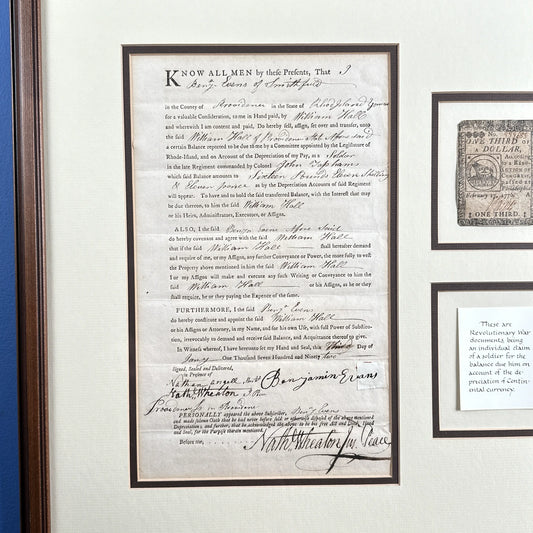 KNOW ALL MEN by these Presents, That I
Benjn. Evens of Smithfield
in the County of Providence in the State of Rhod Island
for a valuable Consideration, to me in Hand paid, by William Hall
and wherewith I am content and paid, Do hereby sell, assign, set over and transfer, unto
the said William Hall of Providence State Afore said
a certain Balance reported to be due me by a Committee appointed by the Legislature of
Rhode-Island, and on Account of the Depreciation of my Pay, as a Soldier
in the late Regiment commanded by Colonel John Topham
which said Balance amounts to Sixteen Pounds Eleven Shillings
& Eleven pence as by the Depreciation Accounts of said Regiment
will appear. To have and to hold said transferred Balance, with the Interest that may
be due thereon, to him the said William Hall
or his Heirs, Administrators, Executors, or Assigns.
ALSO, I the said Afore Said
do hereby covenant and agree with the said William Hall
that if the said William Hall shall hereafter demand
and require of me, or my Assigns, any further Conveyance or Power, the more fully to vest
the Property above mentioned in him the said William Hall
I or my Assigns will make and execute any such Writing or Conveyance to him the
said William Hall or his Assigns, as he or they
shall require, he or they paying the Expence of the same.
FURTHERMORE, I the said Benjn. Evens
do hereby constitute and appoint the said William Hall
or his Assigns or Attorney, in my Name, and for his own Use, with full Power of Substitution,
irrevocably to demand and receive said Balance, and Acquittance thereof to give.
In Witness whereof, I have hereunto set my Hand and Seal, this Third Day of
Jany One Thousand Seven Hundred and Ninety two
Signed, Sealed and Delivered,
in Presence of
Nathan Angell
Nath. Wheaton Benjamin Evans
Providence Ss. in Providence
PERSONALLY appeared the above Subscriber Benj. Evans
and made solemn Oath that he had never before sold or otherwise disposed of the above mentioned
Depreciation; and further, that he acknowledged the above to be his free Act and Deed, Hand
and Seal, for the Purpose therein mentioned.
Before me, Nath. Wheaton Jus. Peace
ONE THIRD OF
A DOLLAR,
According
to a
Resolution
of
Congress,
passed at
Philadelphia
February 17, 1776.
ONE THIRD.
These are
Revolutionary War
documents, being
an individual claim
of a soldier for the
balance due him on
account of the de-
preciation of Conti-
nental currency.